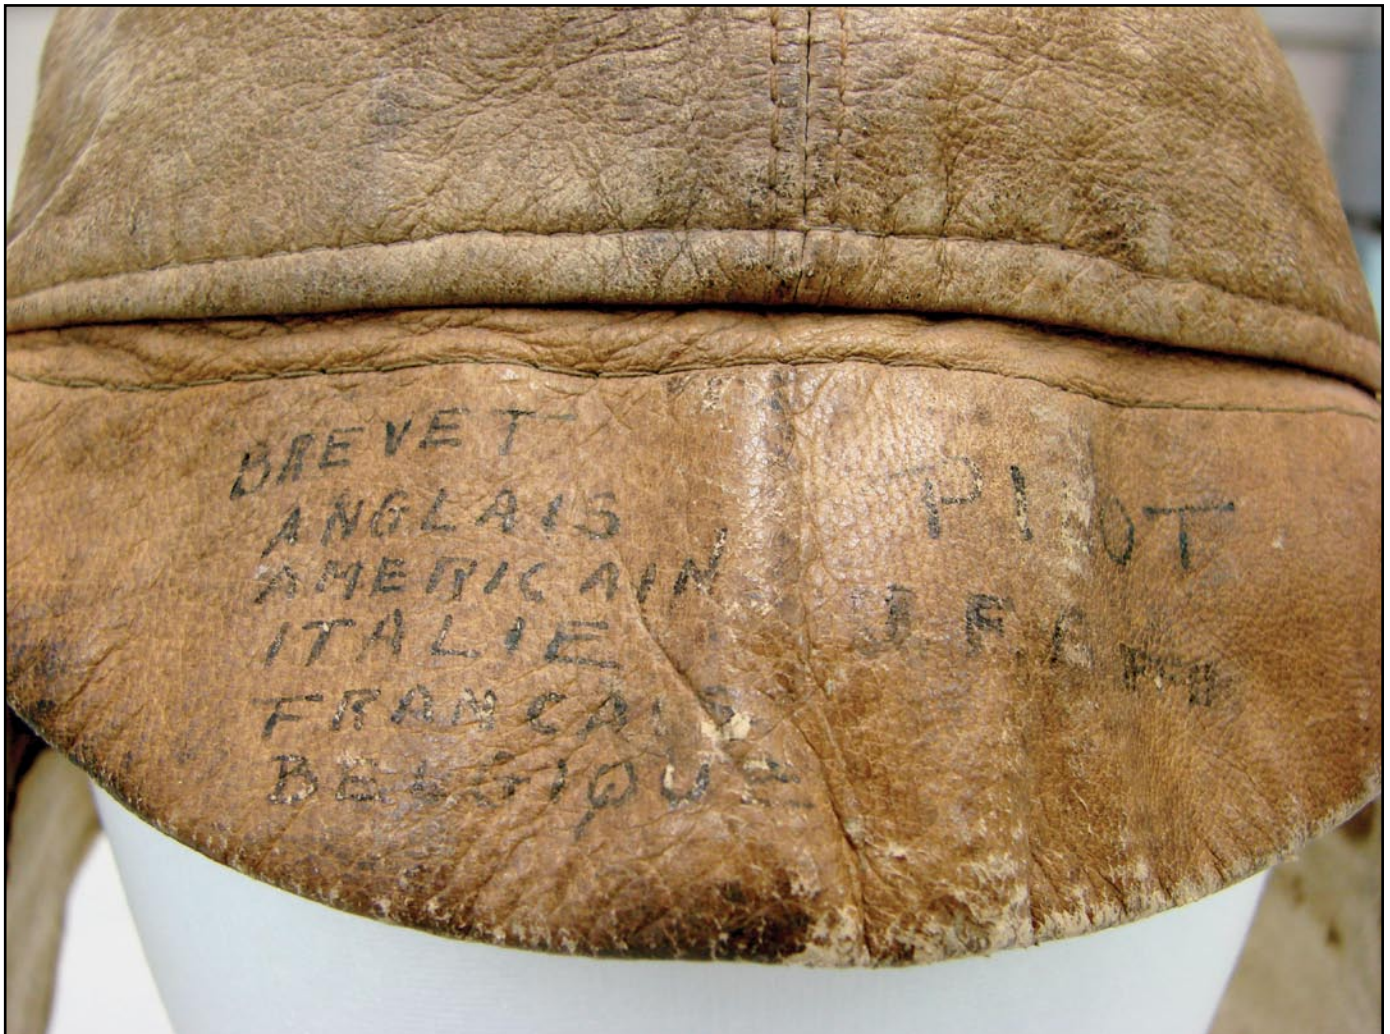 BREVET
ANGLAIS
AMERICAIN
ITALIE
FRANCAIS
BELGIQUE
PI OT
J. F.